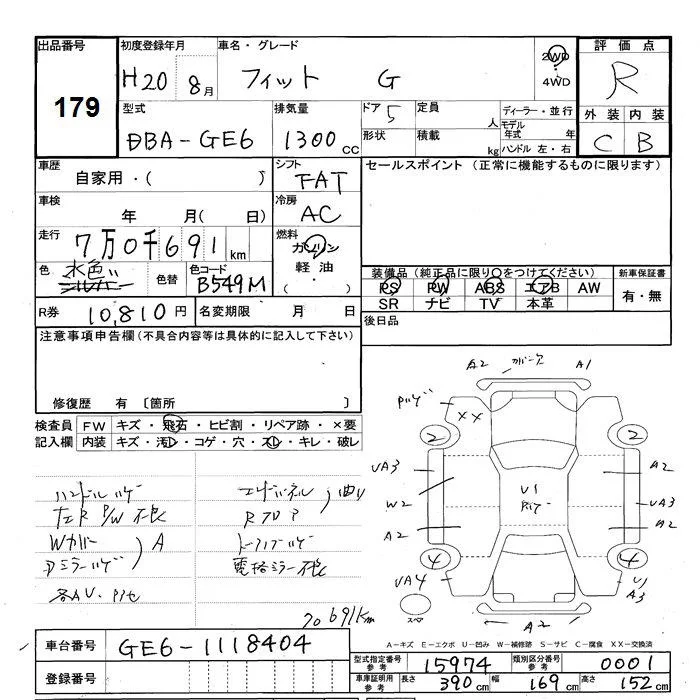 出品番号 初度登録年月 車名・グレード 2WD 評価点
179 H20 8月 フィット G 4WD R
型式 排気量 ドア 5 定員 人 ディーラー・並行 外装 内装
DBA-GE6 1300cc 形状 積載 kg モデル年式 年 ハンドル 左・右 C B
車歴 シフト セールスポイント (正常に機能するものに限ります)
自家用・( ) FAT
車検 冷房
年 月(日) AC
走行 燃料
7万0千691km ガソリン
軽油
( ・ )
色 水色 シルバー 色替 色コード B549M
装備品 (純正品に限り○をつけてください) 新車保証書
PS PW ABS エアB AW 有・無
SR ナビ TV 本革
R券 10,810円 名変期限 月 日 後日品
注意事項申告欄(不具合内容等は具体的に記入して下さい)
修復歴 有 〔箇所 〕
検査員 FW キズ・飛石・ヒビ割・リペア跡・×要
記入欄 内装 キズ・汚レ・コゲ・穴・スレ・キレ・破レ
A2 A1
XX
2 2
UA3 A2
W2 UA3
A2 A2
U1
4 4
UA4 U1
A3
A2
ハンドルハゲ
Wカバー
A
Dミラーハゲ
70691km
A-キズ E-エクボ U-凹み W-補修跡 S-サビ C-腐食 XX-交換済
車台番号 GE6-1118404
登録番号
型式指定番号 参考 15974 類別区分番号 参考 0001
車庫証明用 参考 長さ 390cm 幅 169cm 高さ 152cm